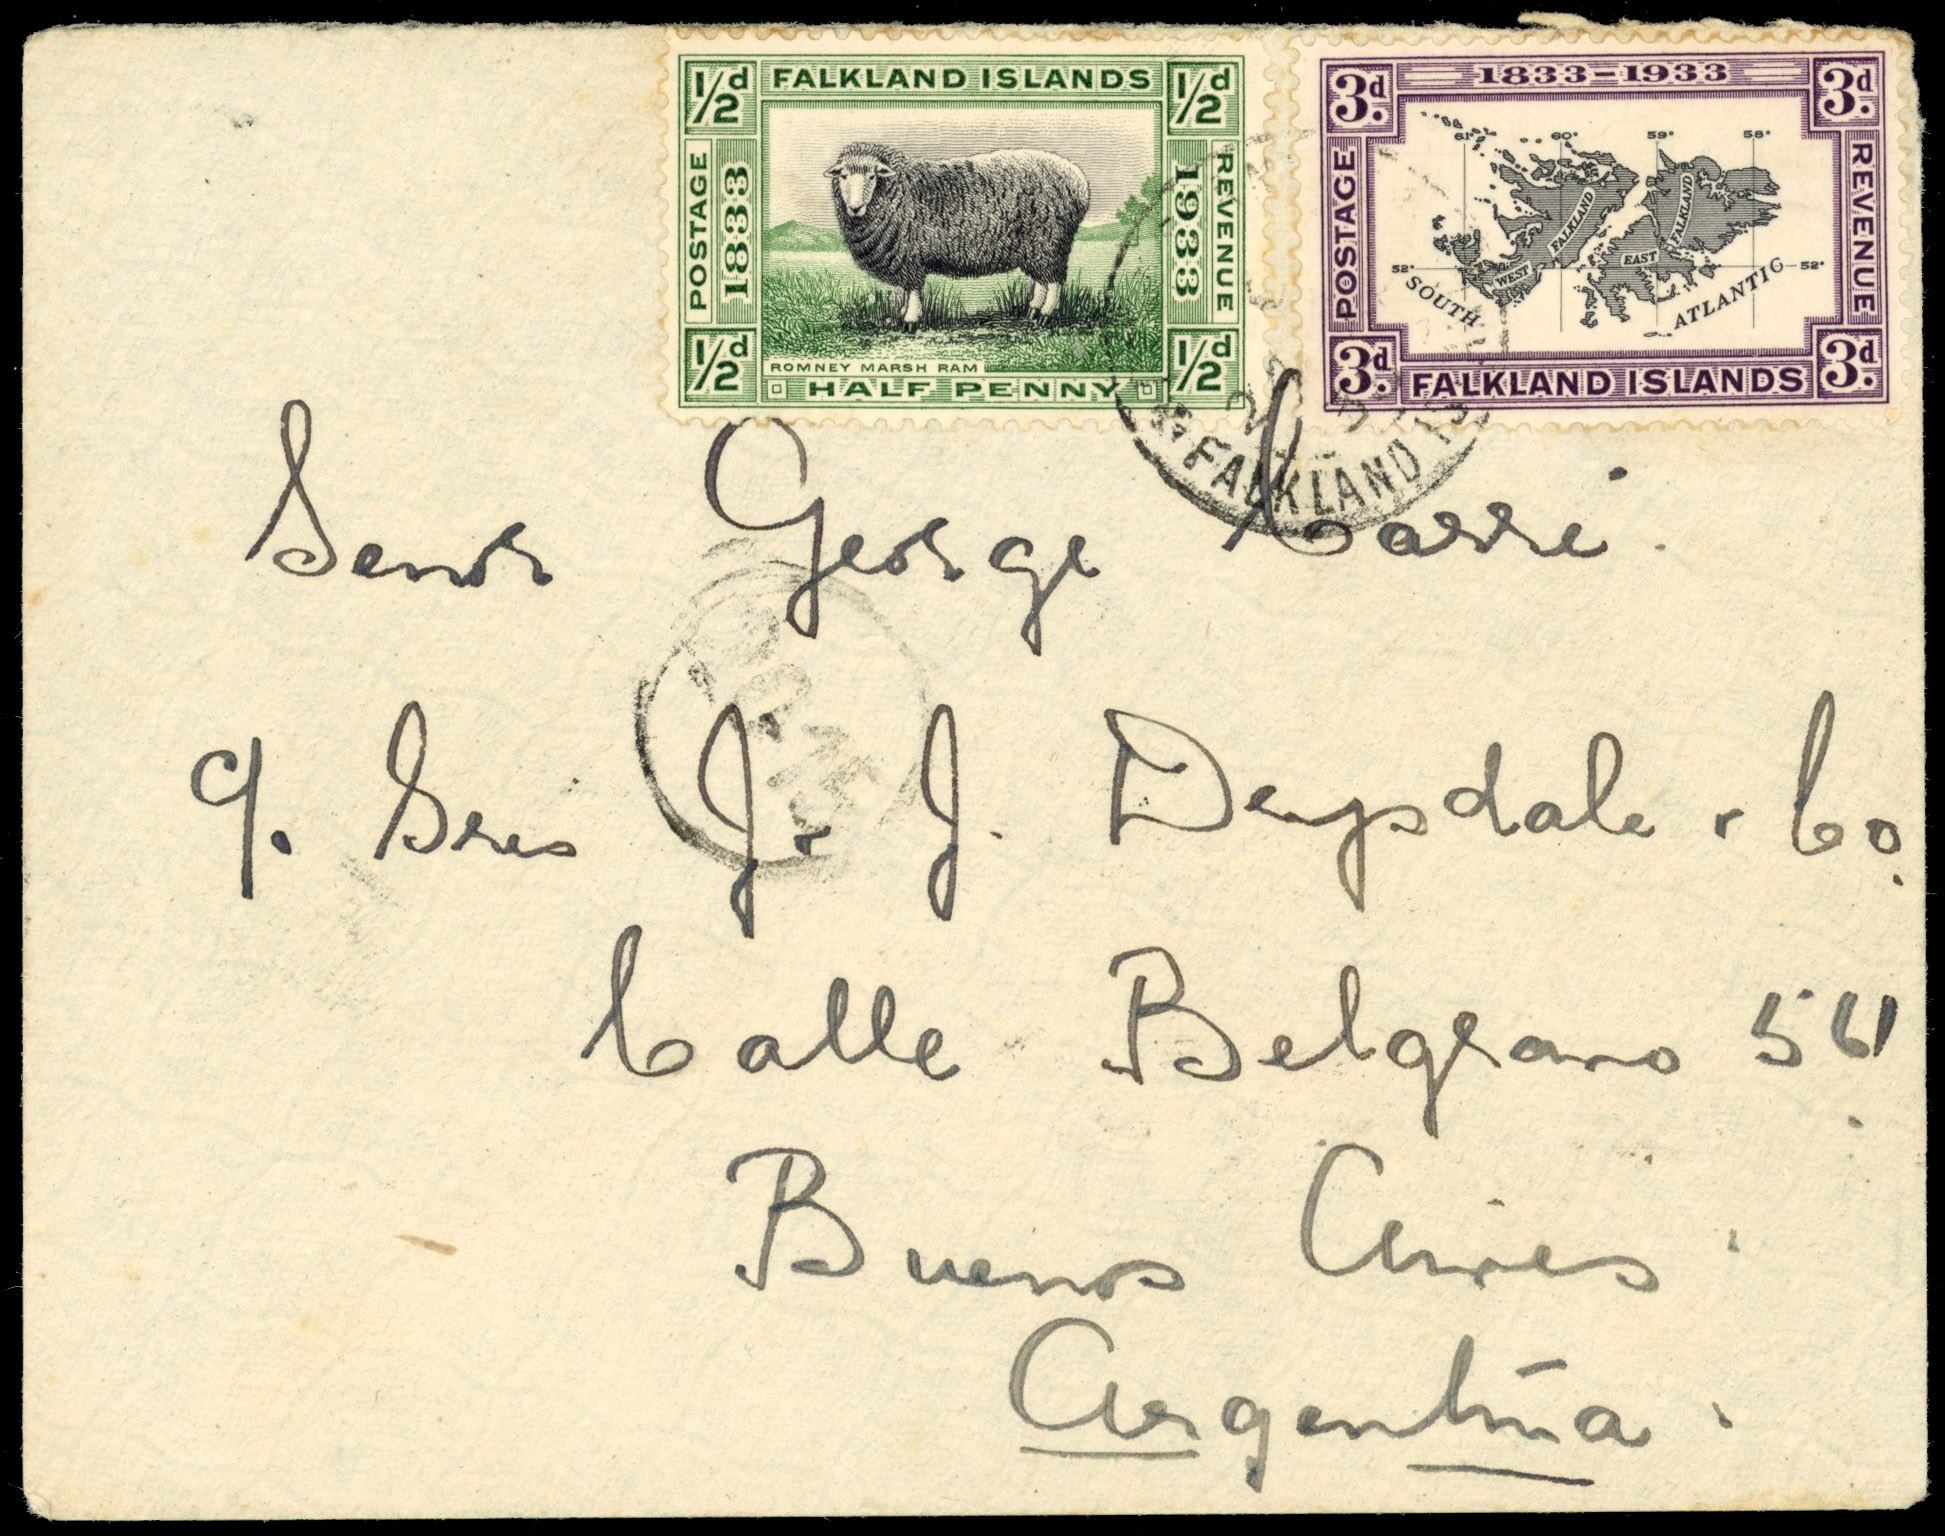 ½d FALKLAND ISLANDS ½d
POSTAGE 1833 1933 REVENUE
ROMNEY MARSH RAM
½d HALF PENNY ½d
3d 1833-1933 3d
61° 60° 59° 58°
POSTAGE REVENUE
WEST FALKLAND EAST FALKLAND
52° 52°
SOUTH ATLANTIC
3d FALKLAND ISLANDS 3d
FALKLAND IS
Senor George Carre
c/o Sres J. & J. Drysdale & Co
Calle Belgrano 561
Buenos Aires
Argentina